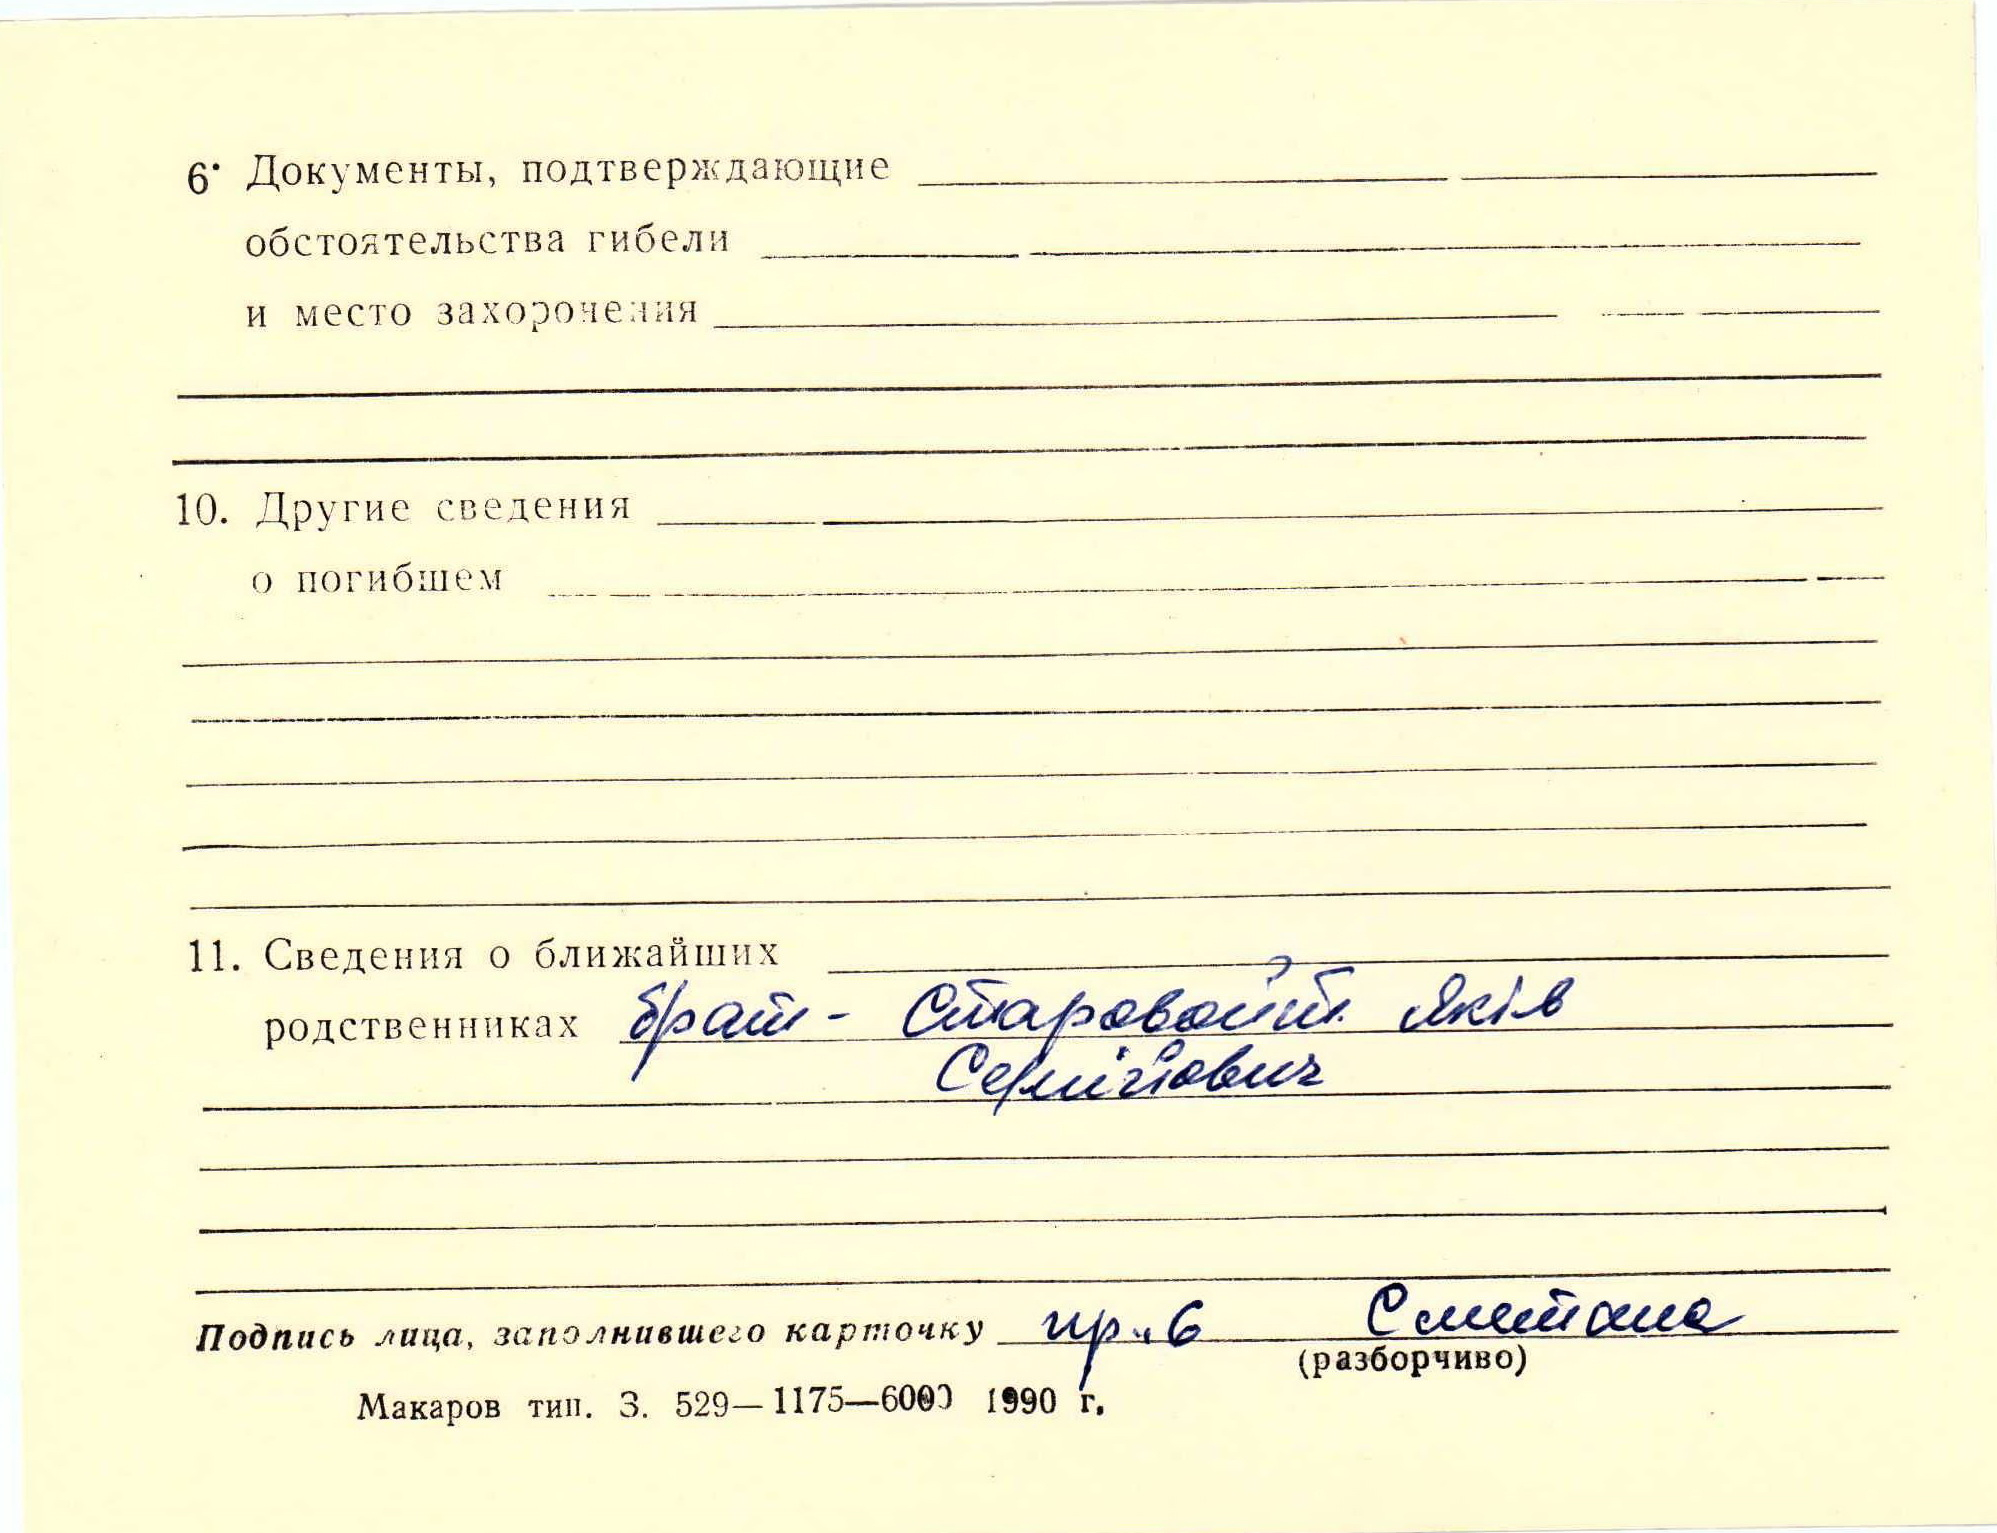 6. Документы, подтверждающие
обстоятельства гибели
и место захоронения
10. Другие сведения
о погибшем
11. Сведения о ближайших
родственниках брат - Старовойт Яків
Семенович
Подпись лица, заполнившего карточку Сметана
(разборчиво)
Макаров тип. З. 529—1175—6000 1990 г.